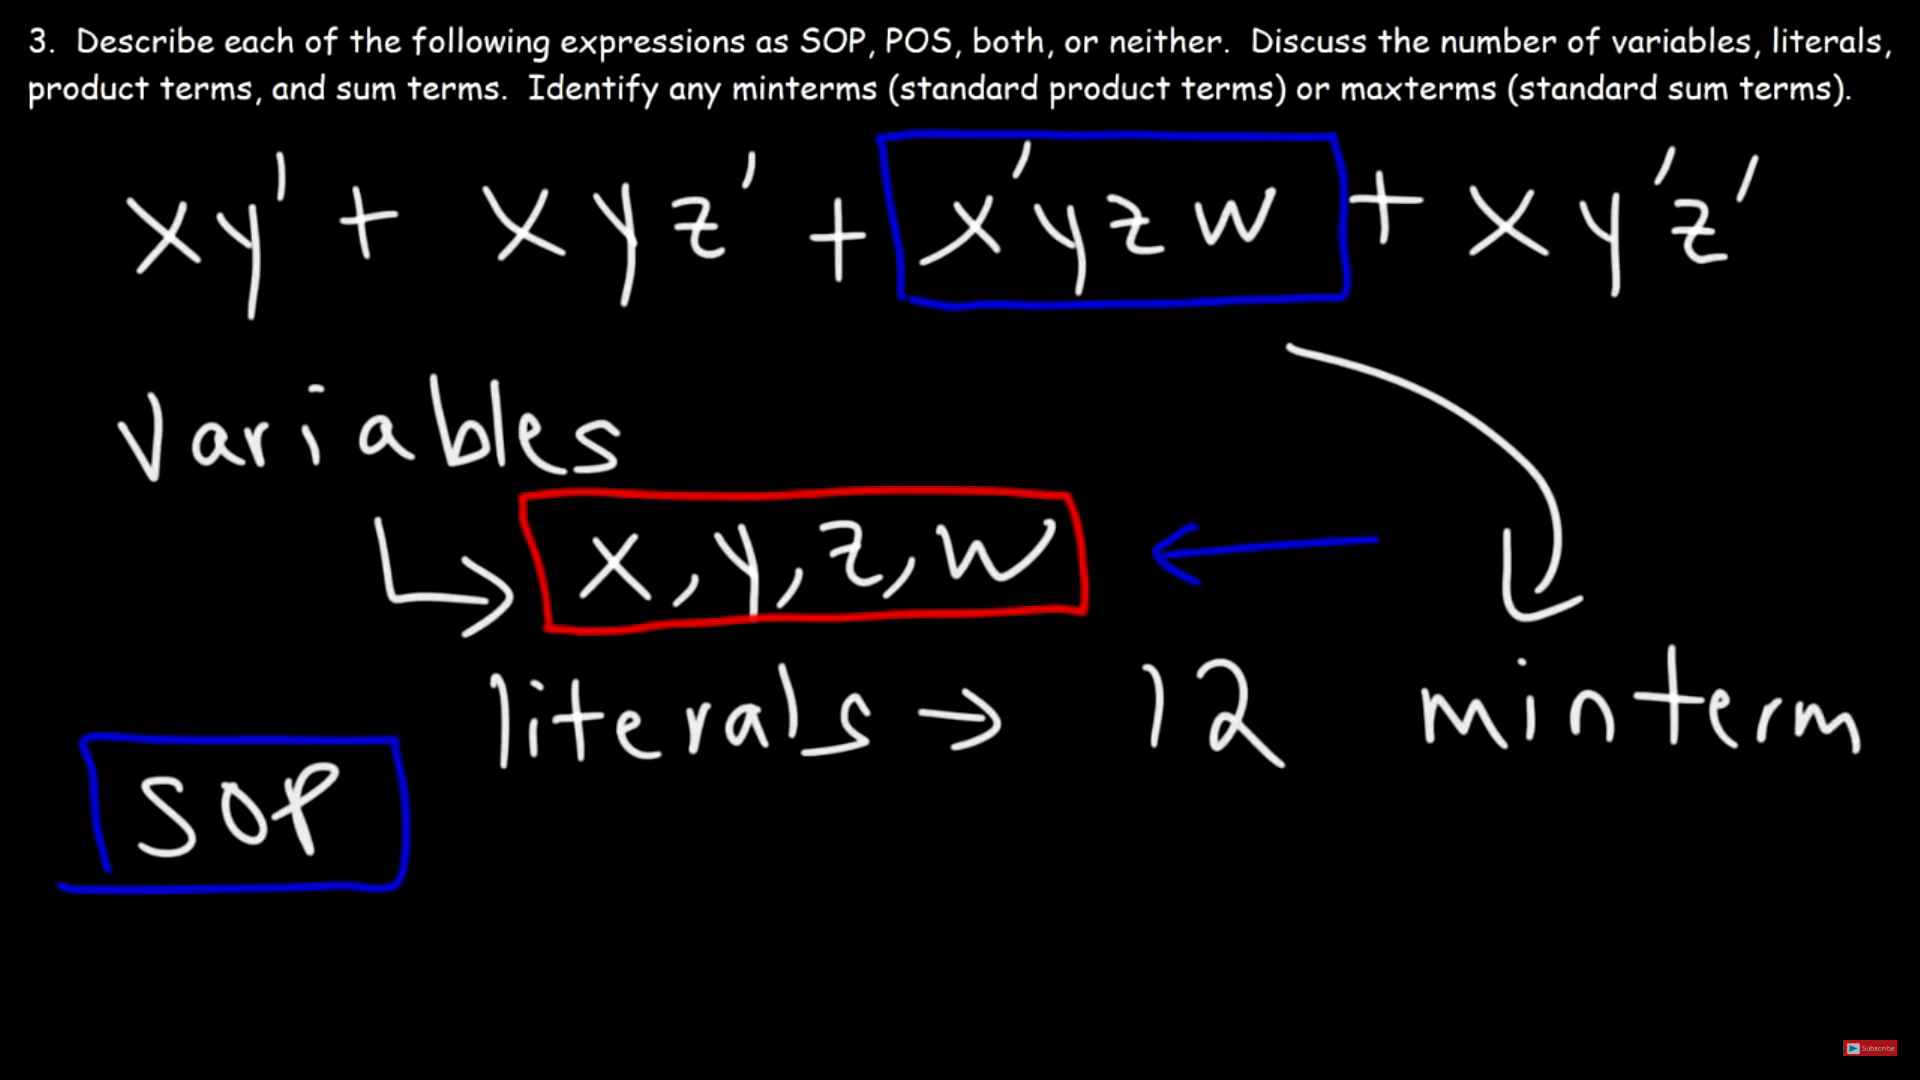 3. Describe each of the following expressions as SOP, POS, both, or neither. Discuss the number of variables, literals,
product terms, and sum terms. Identify any minterms (standard product terms) or maxterms (standard sum terms).
xy' + xyz' + x'yzw + xy'z'
Variables
x, y, z, w
literals → 12
minterm
SOP
Subscribe